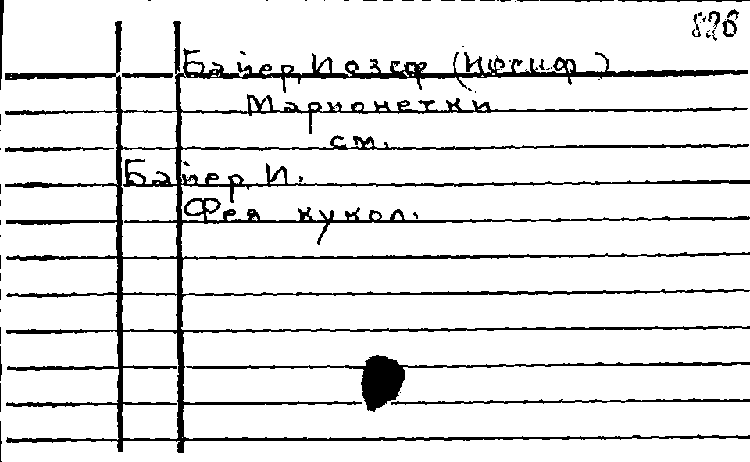 826
Байер, Иозеф (Иосиф)
Марионетки
см.
Байер, И.
Фея кукол.